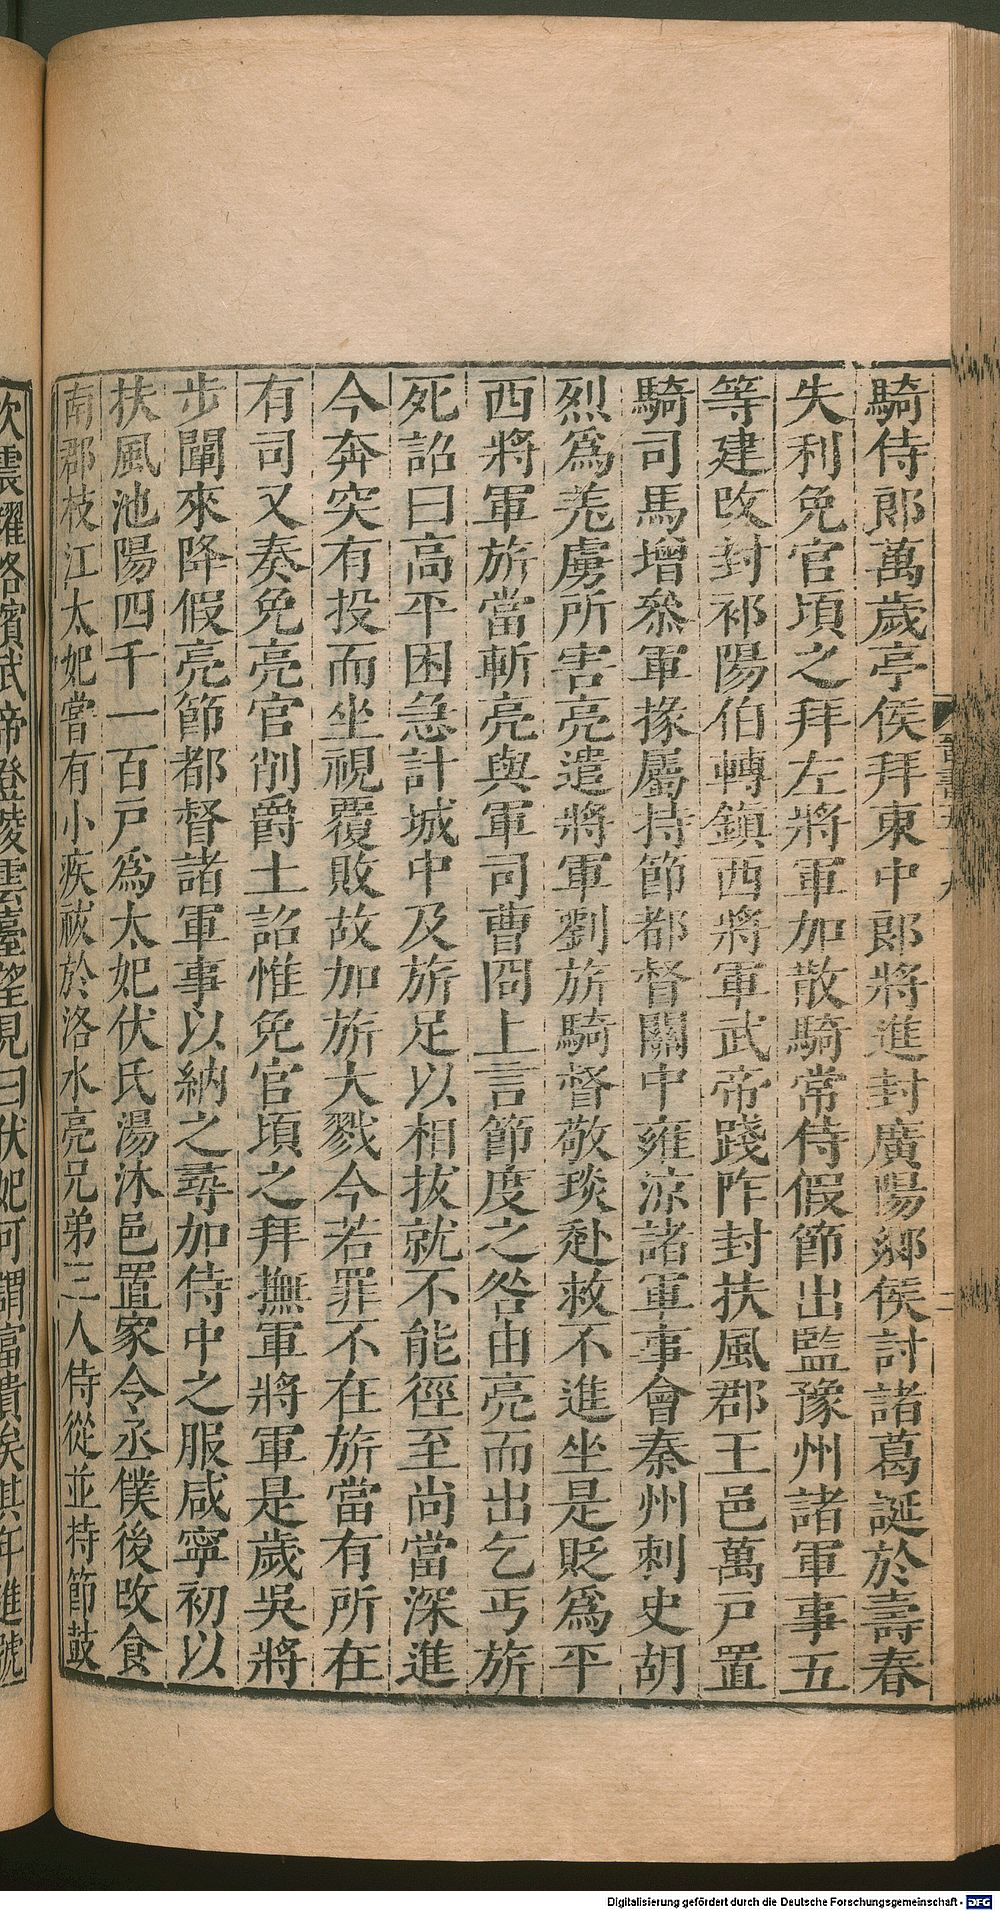 騎侍郎萬歲亭侯拜東中郎將進封廣陽鄉侯討諸葛誕於壽春
失利免官頃之拜左將軍加散騎常侍假節出監豫州諸軍事五
等建改封祁陽伯轉鎮西將軍武帝踐阼封扶風郡王邑萬戶置
騎司馬增叅軍掾屬持節都督關中雍涼諸軍事會秦州刺史胡
烈爲羗虜所害亮遣將軍劉旂騎督敬琰赴救不進坐是貶爲平
西將軍旂當斬亮與軍司曹冏上言節度之咎由亮而出乞丐旂
死詔曰高平困急計城中及旂足以相拔就不能徑至尚當深進
今奔突有投而坐視覆敗故加旂大戮今若罪不在旂當有所在
有司又奏免亮官削爵土詔惟免官頃之拜撫軍將軍是歲吳將
步闡來降假亮節都督諸軍事以納之尋加侍中之服咸寧初以
扶風池陽四千一百戶爲太妃伏氏湯沐邑置家令丞僕後改食
南郡枝江太妃嘗有小疾祓於洛水亮兄弟三人侍從並持節鼓
吹震耀洛濱武帝登陵雲臺望見曰伏妃可謂富貴矣其年進號
Digitalisierung gefördert durch die Deutsche Forschungsgemeinschaft - DFG